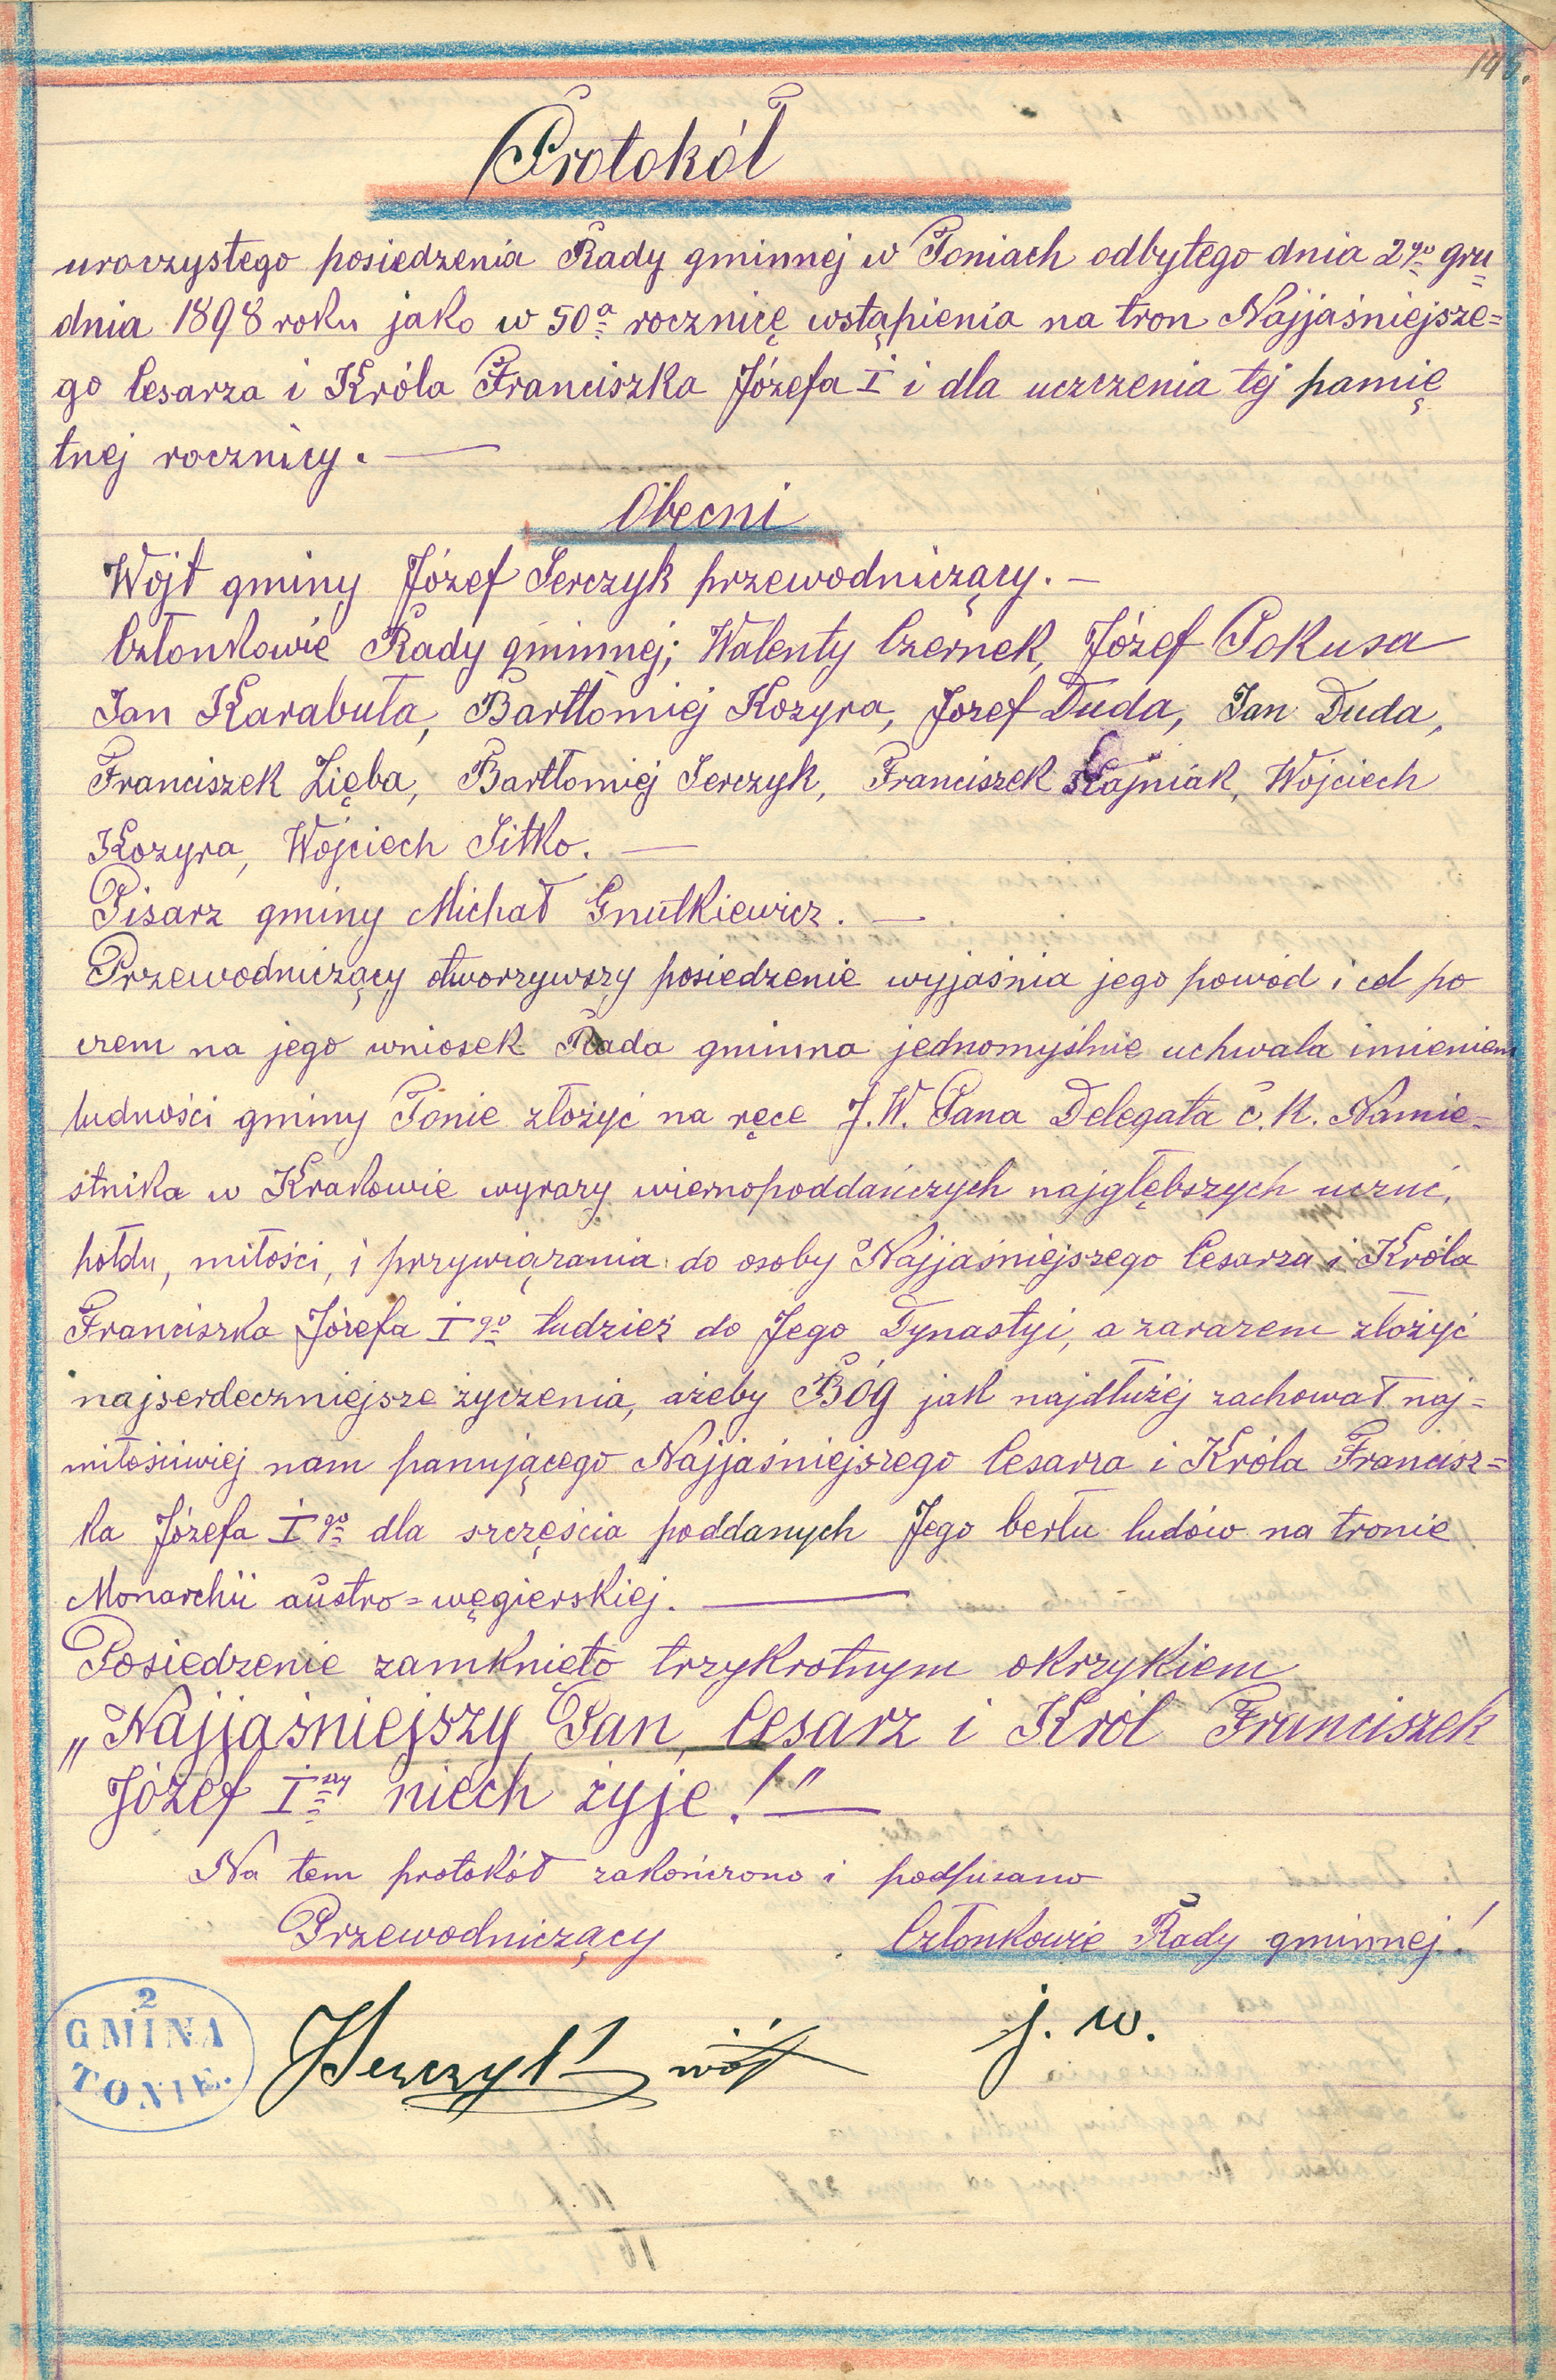 145.
Protokół
uroczystego posiedzenia Rady gminnej w Toniach odbytego dnia 2go gru=
dnia 1898 roku jako w 50a rocznicę wstąpienia na tron Najjaśniejsze=
go Cesarza i Króla Franciszka Józefa I i dla uczczenia tej pamię
tnej rocznicy. —
Obecni
Wójt gminy Józef Serczyk przewodniczący. —
Członkowie Rady gminnej; Walenty Czernek, Józef Pokusa
Jan Karabuła, Bartłomiej Kozyra, Józef Duda, Jan Duda,
Franciszek Zięba, Bartłomiej Serczyk, Franciszek Stajniak, Wojciech
Kozyra, Wojciech Sitko. —
Pisarz gminy Michał Gnutkiewicz. —
Przewodniczący otworzywszy posiedzenie wyjaśnia jego powód i cel po
czem na jego wniosek Rada gminna jednomyślnie uchwala imieniem
ludności gminy Tonie złożyć na ręce J. W. Pana Delegata c. k. Namie-
stnika w Krakowie wyrazy wiernopoddańczych najgłębszych uczuć,
hołdu, miłości, i przywiązania do osoby Najjaśniejszego Cesarza i Króla
Franciszka Józefa I go tudzież do Jego Dynastyi, a zarazem złożyć
najserdeczniejsze życzenia, ażeby Bóg jak najdłużej zachował naj=
miłościwiej nam panującego Najjaśniejszego Cesarza i Króla Francisz=
ka Józefa I go dla szczęścia poddanych Jego berłu ludów na tronie
Monarchii austro=węgierskiej. —
Posiedzenie zamknięto trzykrotnym okrzykiem
„Najjaśniejszy Pan, Cesarz i Król Franciszek
Józef I szy niech żyje!" —
Na tem protokół zakończono i podpisano
Przewodniczący Członkowie Rady gminnej!
2
GMINA
TONIE.
JSerczyk wójt j. w.